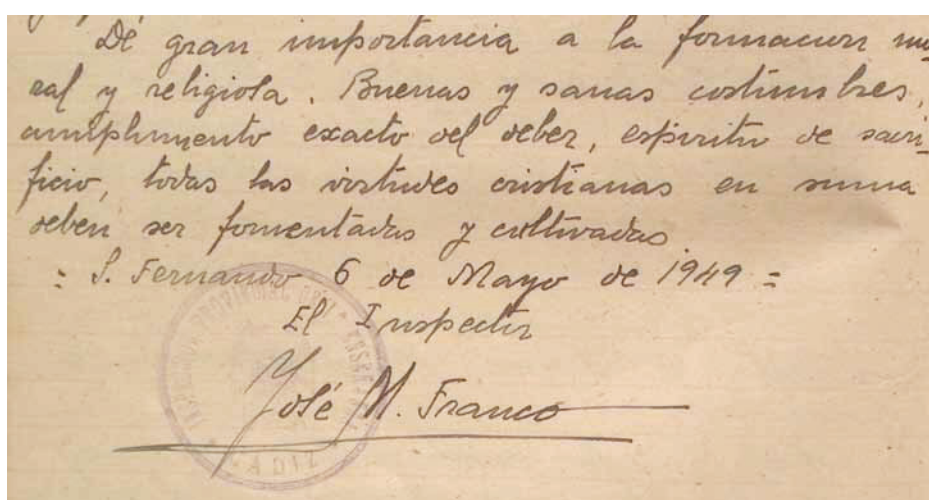 Dé gran importancia a la formacion mo
ral y religiosa. Buenas y sanas costumbres,
cumplimento exacto del deber, espiritu de sacri_
ficio, todas las virtudes cristianas en suma
deben ser fomentadas y cultivadas.
= S. Fernando 6 de Mayo de 1949 =
El Inspector
José M. Franco
INSPECCION PROVINCIAL DE
CADIZ